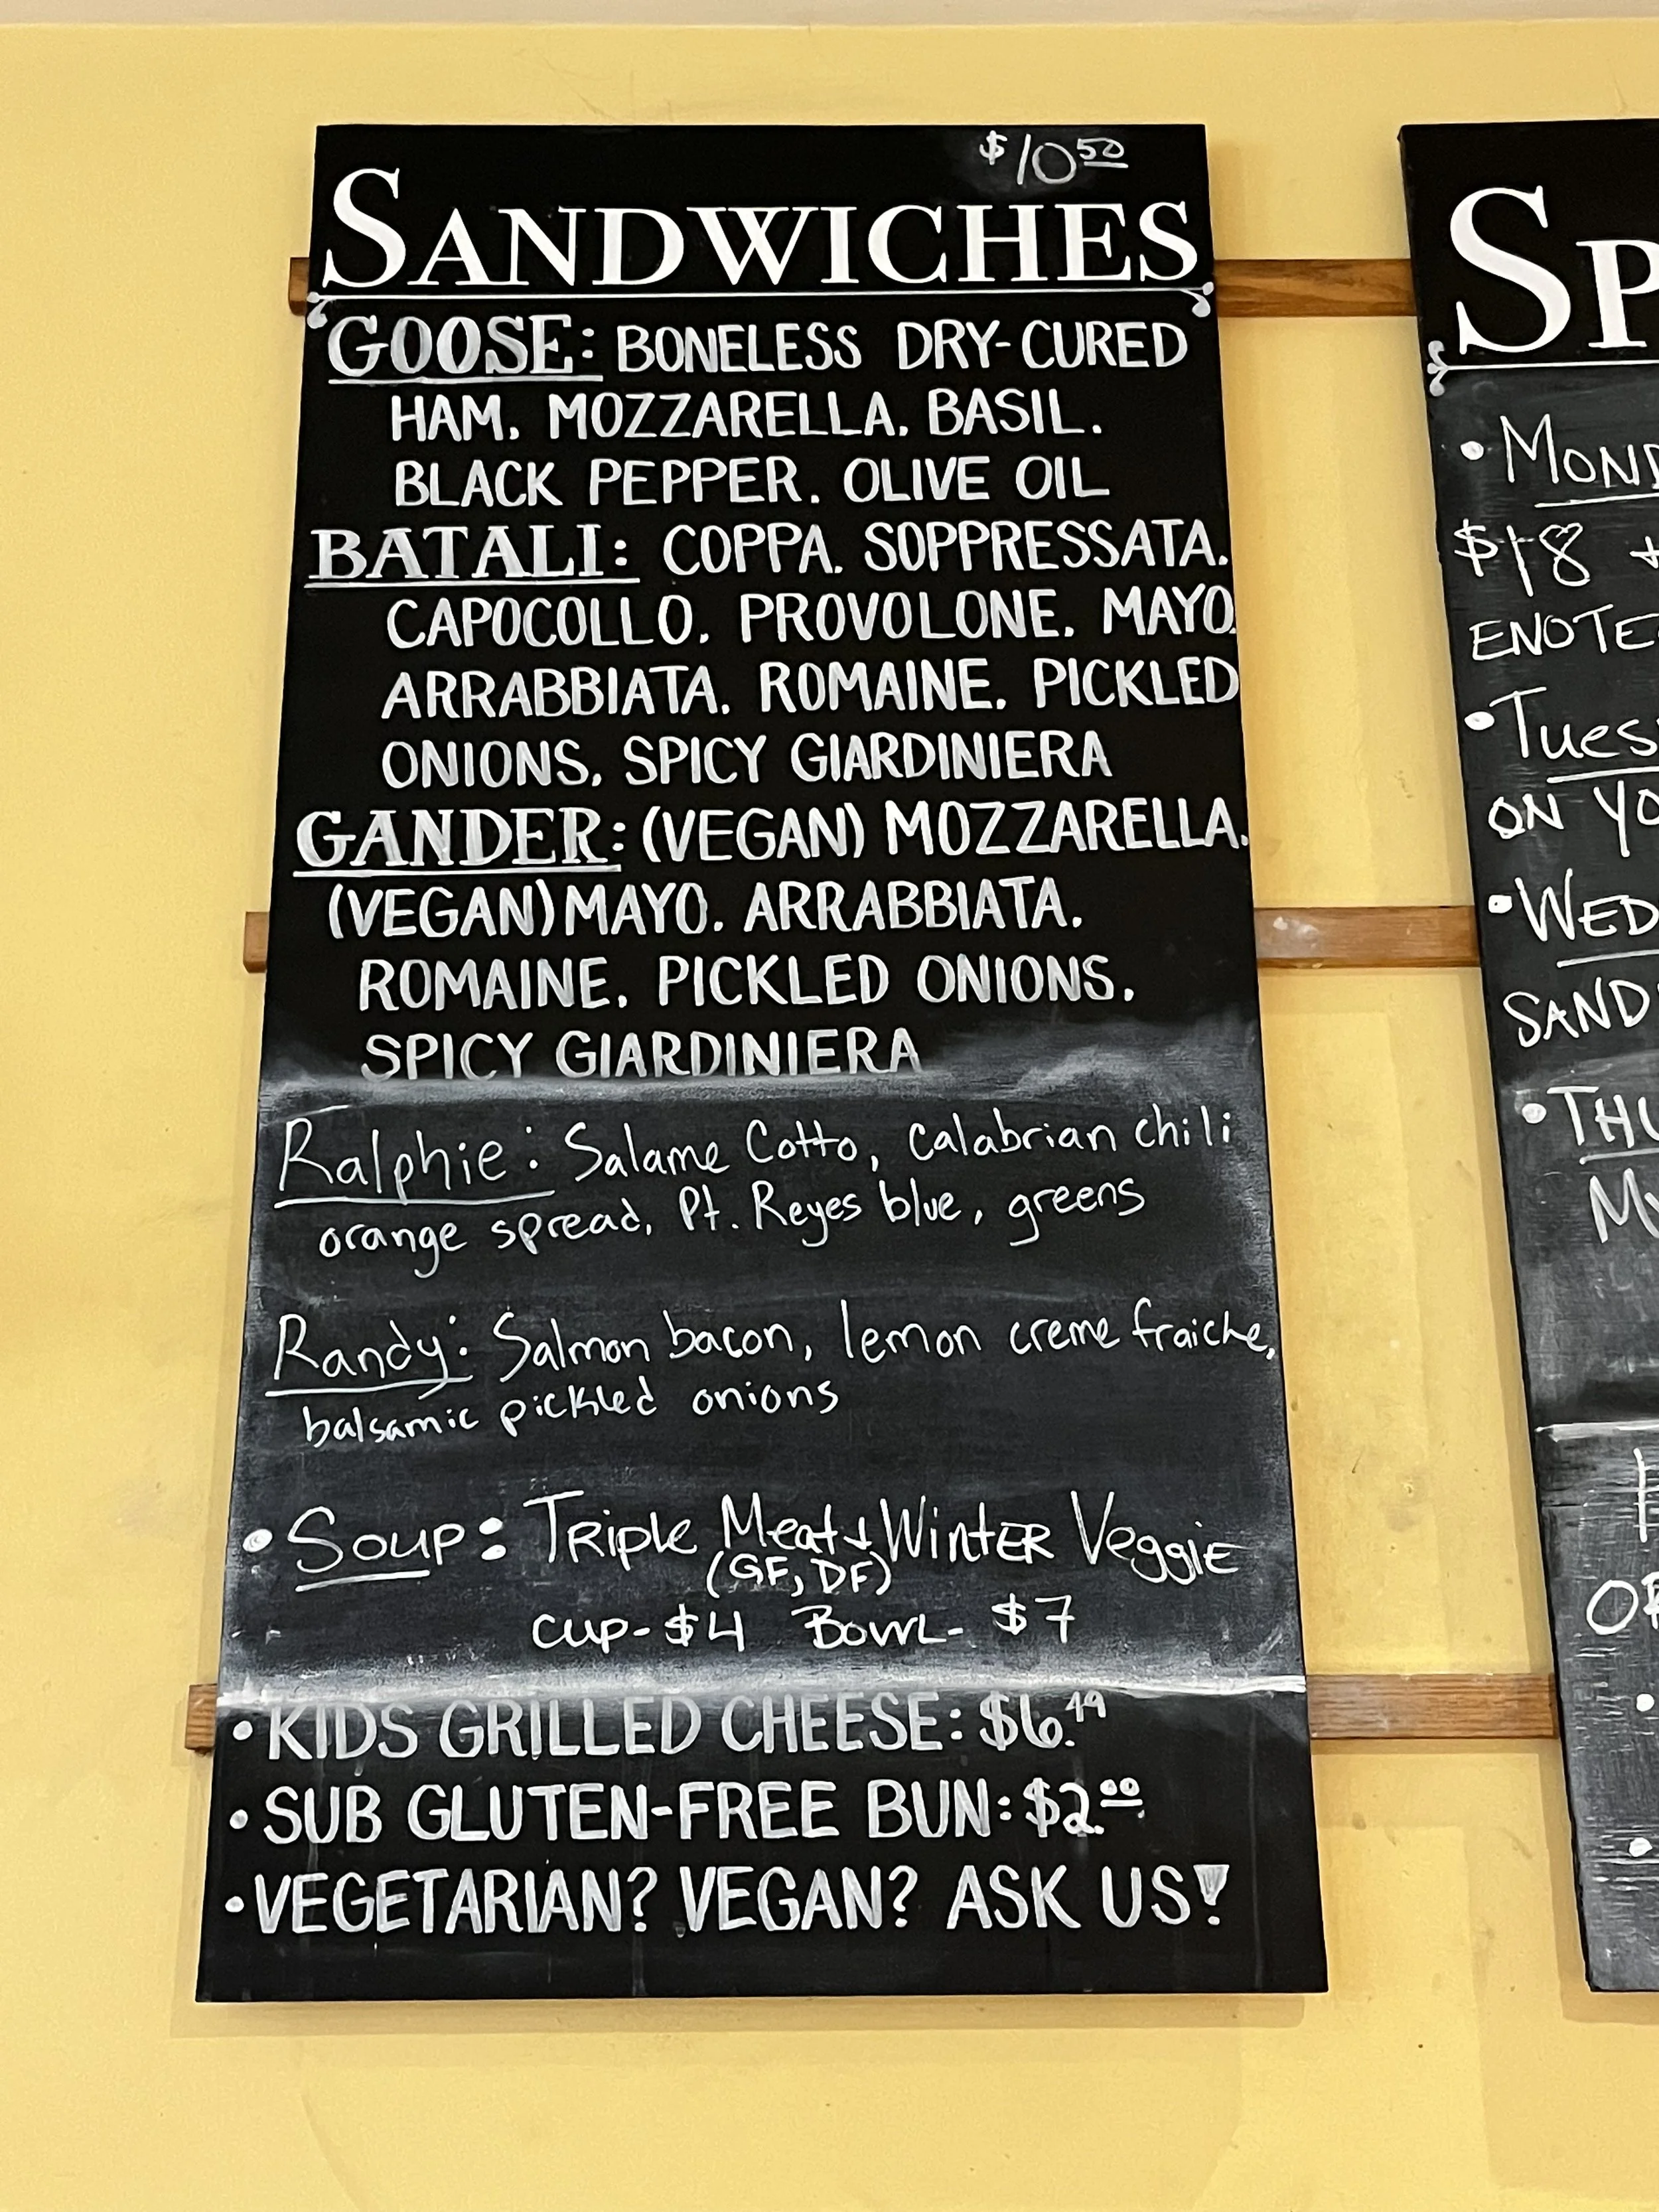 $10 50
SANDWICHES
GOOSE: BONELESS DRY-CURED
HAM, MOZZARELLA, BASIL,
BLACK PEPPER, OLIVE OIL
BATALI: COPPA, SOPPRESSATA,
CAPOCOLLO, PROVOLONE, MAYO,
ARRABBIATA, ROMAINE, PICKLED
ONIONS, SPICY GIARDINIERA
GANDER: (VEGAN) MOZZARELLA,
(VEGAN) MAYO, ARRABBIATA,
ROMAINE, PICKLED ONIONS,
SPICY GIARDINIERA
Ralphie: Salame Cotto, Calabrian chili
orange spread, Pt. Reyes blue, greens
Randy: Salmon bacon, lemon creme fraiche,
balsamic pickled onions
• Soup: Triple Meat + Winter Veggie
(GF, DF)
Cup-$4 Bowl- $7
• KIDS GRILLED CHEESE: $6.49
• SUB GLUTEN-FREE BUN: $2.00
• VEGETARIAN? VEGAN? ASK US!
SP
• MOND
$18 +
ENOTE
• TUES
ON YO
• WED
SAND
• THU
MY
OR